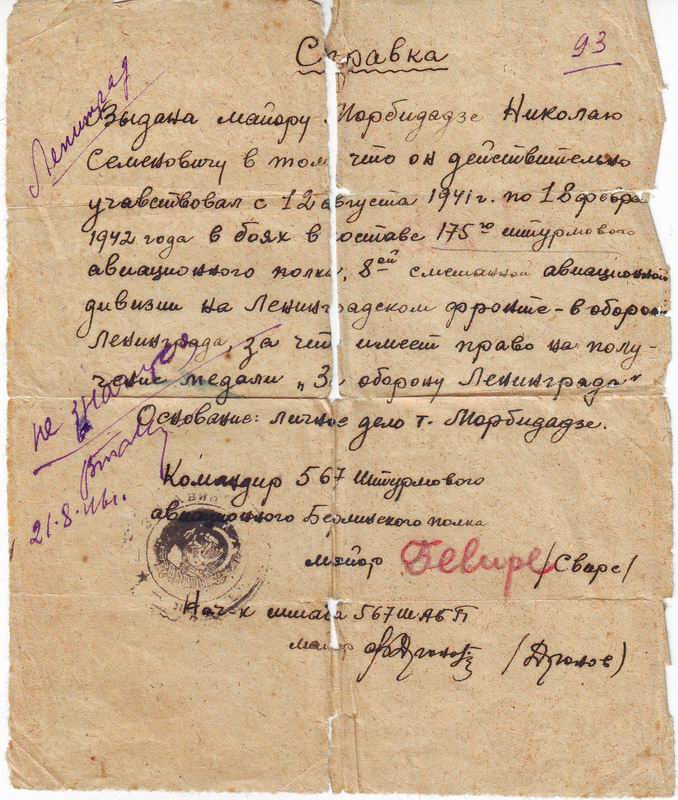 Справка
93
Ленинград
Выдана майору Морбидадзе Николаю
Семеновичу в том, что он действительно
учавствовал с 12 августа 1941г. по 18 февра
1942 года в боях в составе 175го штурмового
авиационного полка, 8ой смешанной авиационной
дивизии на Ленинградском фронте - в оборон
Ленинграда, за что имеет право на полу-
чение медали „За оборону Ленинграда"
Основание: личное дело т. Морбидадзе.
не значится
21.8.46г.
Командир 567 Штурмового
авиационного Берлинского полка
майор /Сваре/
Нач-к штаба 567 ШАБП
майор (Дронов)